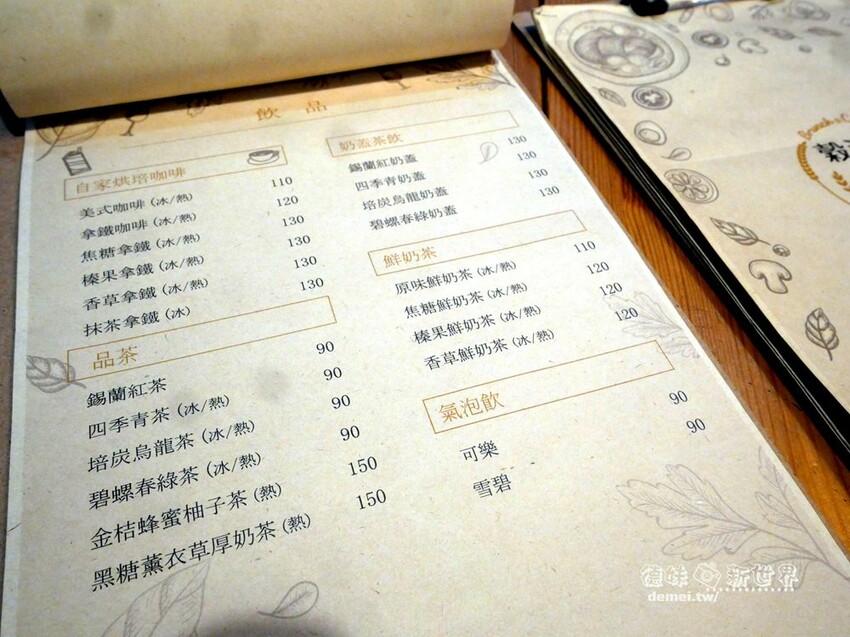 飲品
自家烘培咖啡
美式咖啡(冰/熱) 110
拿鐵咖啡(冰/熱) 120
焦糖拿鐵(冰/熱) 130
榛果拿鐵(冰/熱) 130
香草拿鐵(冰/熱) 130
抹茶拿鐵(冰) 130
品茶
錫蘭紅茶 90
四季青茶(冰/熱) 90
培炭烏龍茶(冰/熱) 90
碧螺春綠茶(冰/熱) 90
金桔蜂蜜柚子茶(熱) 150
黑糖薰衣草厚奶茶(熱) 150
奶蓋茶飲
錫蘭紅奶蓋 130
四季青奶蓋 130
培炭烏龍奶蓋 130
碧螺春綠奶蓋 130
鮮奶茶
原味鮮奶茶(冰/熱) 110
焦糖鮮奶茶(冰/熱) 120
榛果鮮奶茶(冰/熱) 120
香草鮮奶茶(冰/熱) 120
氣泡飲
可樂 90
雪碧 90
Brunch &
穀
德味 新世界
demei.tw/